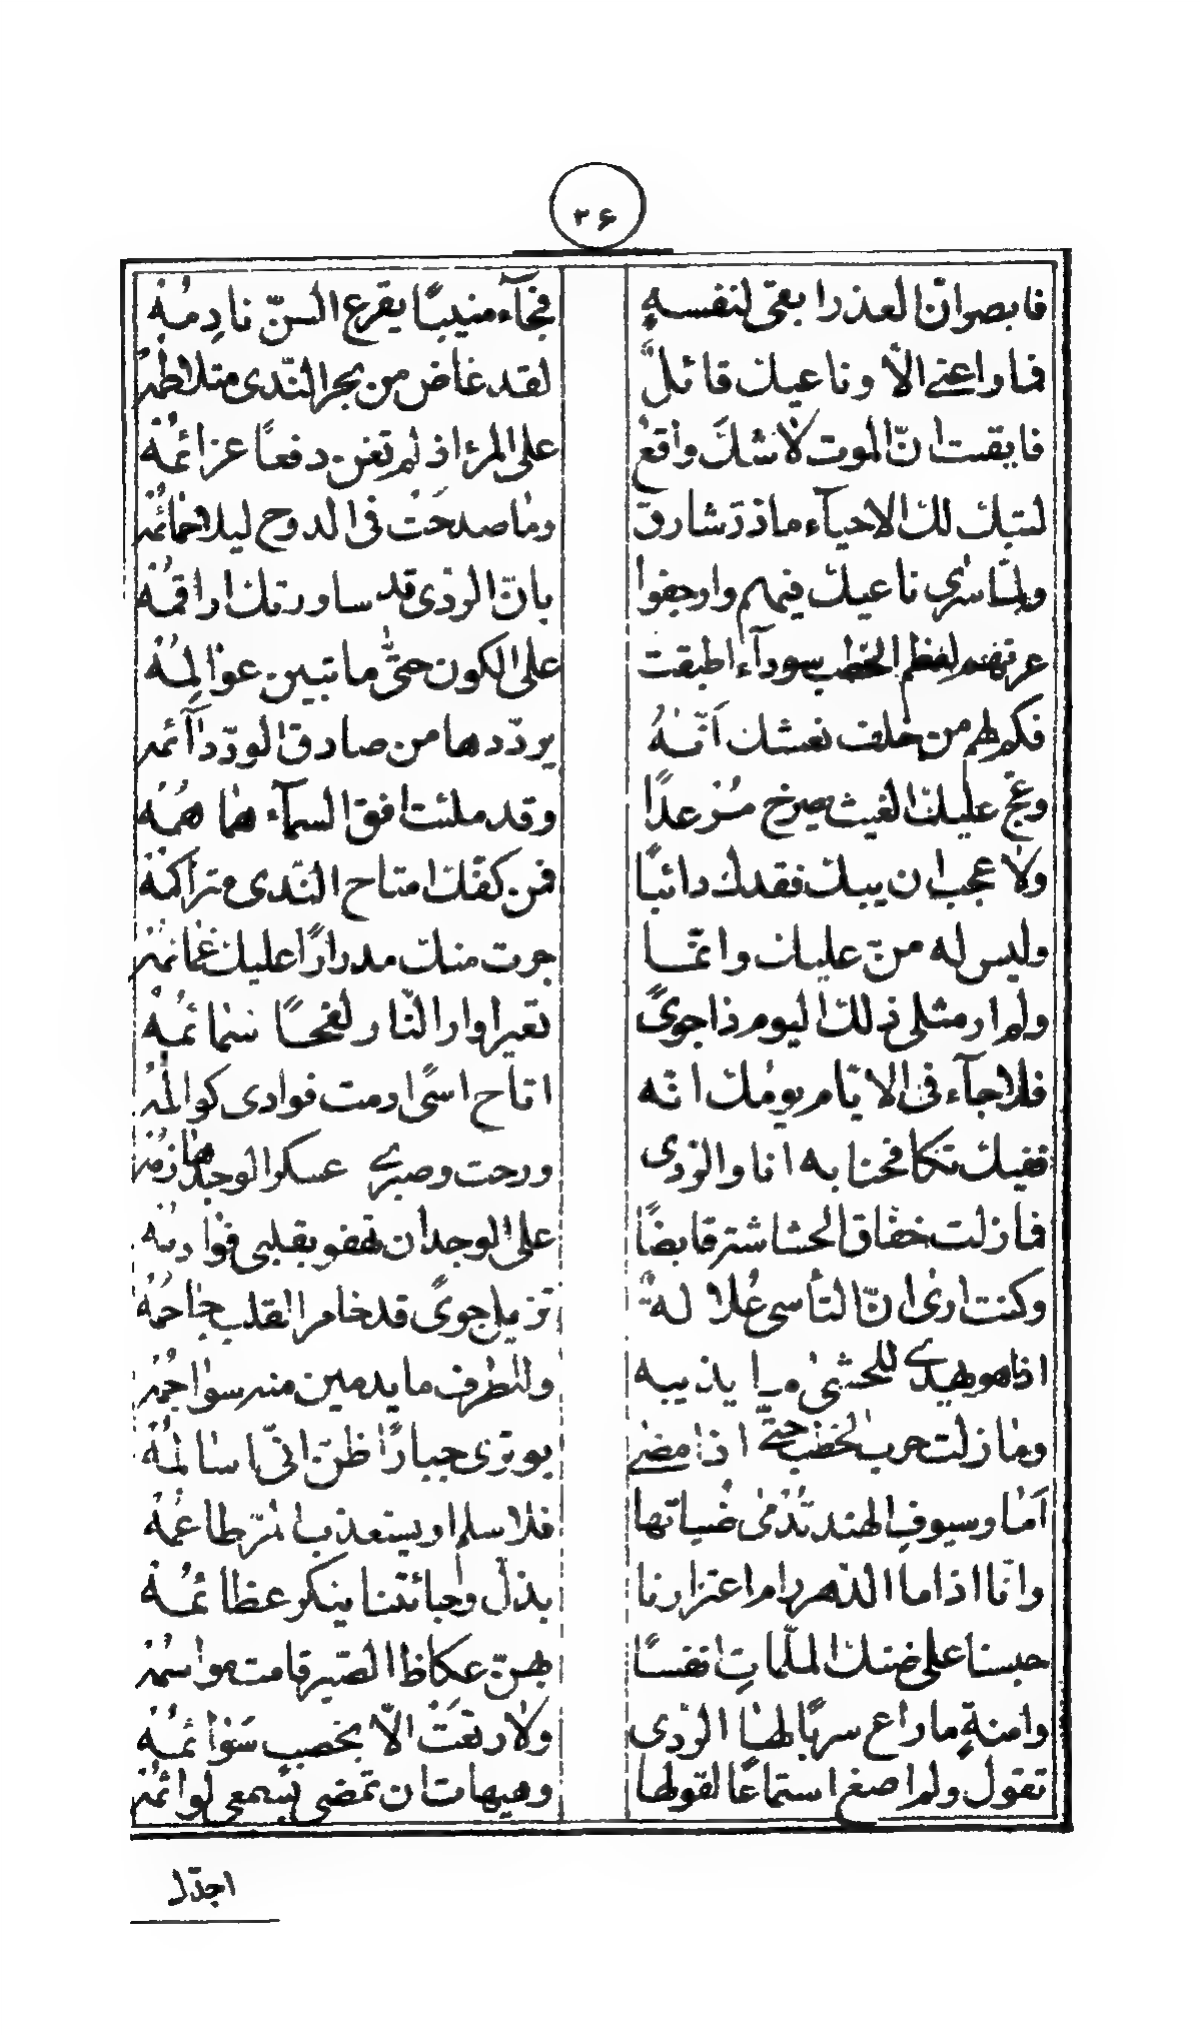 ٣۶
فابصر انّ العذر ابقى لنفسهِ فجآء منيبًا يقرع السنّ نادِمُهْ
فما راعنى الّا وناعيك قائلٌ لقد غاض من بحر النّدى متلاطمُهْ
فايقنت انّ الموت لا شكّ واقعٌ على المرء اذ لم تغن دفعًا عزائمُهْ
لتبك لك الاحيآء ما ذرّ شارق وما صدحَتْ فى الدوح ليلًا حمائمُهْ
ولمّا سرى ناعيك فيهم وارجفوا بانّ الرّدى قد ساورتك اراقمُهْ
عرتهم لعظم الخطب سودآء اطبقت على الكون حتّى ما تبين عوالِمُهْ
فكم لهم من خلف نعشك اَنّهُ يردّدها من صادق الودّ دآئمهْ
وعجّ عليك الغيث يصرخ مُرعدًا وقد ملئت افق السمآء هماهمُهْ
ولا عجب ان يبك فقدك دائبًا فمن كفّك امتاح النّدى متراكمُهْ
وليس له منّ عليك وانّما جرت منك مدرارًا عليك غمائمُهْ
ولم ار مثلى ذلك اليوم ذا جوىً تعير اوار النّار لفحًا سمائمُهْ
فلا جآء فى الايّام يومك انّه اتاح اسًى ادمت فوادى كوالمُهْ
ففيك تكافحنا به انا والرّدى ورحت وصبرى عسكر الوجد هازمُهْ
فما زلت خفّاق الحشاشة قابضًا على الوجد ان تهفو بقلبى قوادمُهْ
وكنت ارى انّ التأسى عُلالةٌ تزيل جوىً قد خامر القلب جاحمُهْ
اذا هو يهدى للحشى ما يذيبه وللطرف ما يدمين منه سواجمُهْ
وما زلت حرب الخطب حتّى اذا مضى بوترى جبارًا ظنّ انّى اسالمُهْ
اَما وسيوفِ الهند تُدْمى ظُباتها فلا سلم او يستعذب المرّ طاعمُهْ
وانّا اذا ما الدّهر رام اعتزارنا بذلّ وجائتنا بنكر عظائمُهْ
حبسنا على ضنك الملمّاتِ انفسًا بهنّ عكاظ الصّبر قامت مواسمُهْ
وامنةٍ ما راع سربًا لها الرّدى ولا رتعَتْ الّا بخصب سَوائمُهْ
تقول ولم اصغ استماعًا لقولها وهيهات ان تمضى بسمعى لوائمُهْ
اجدّل